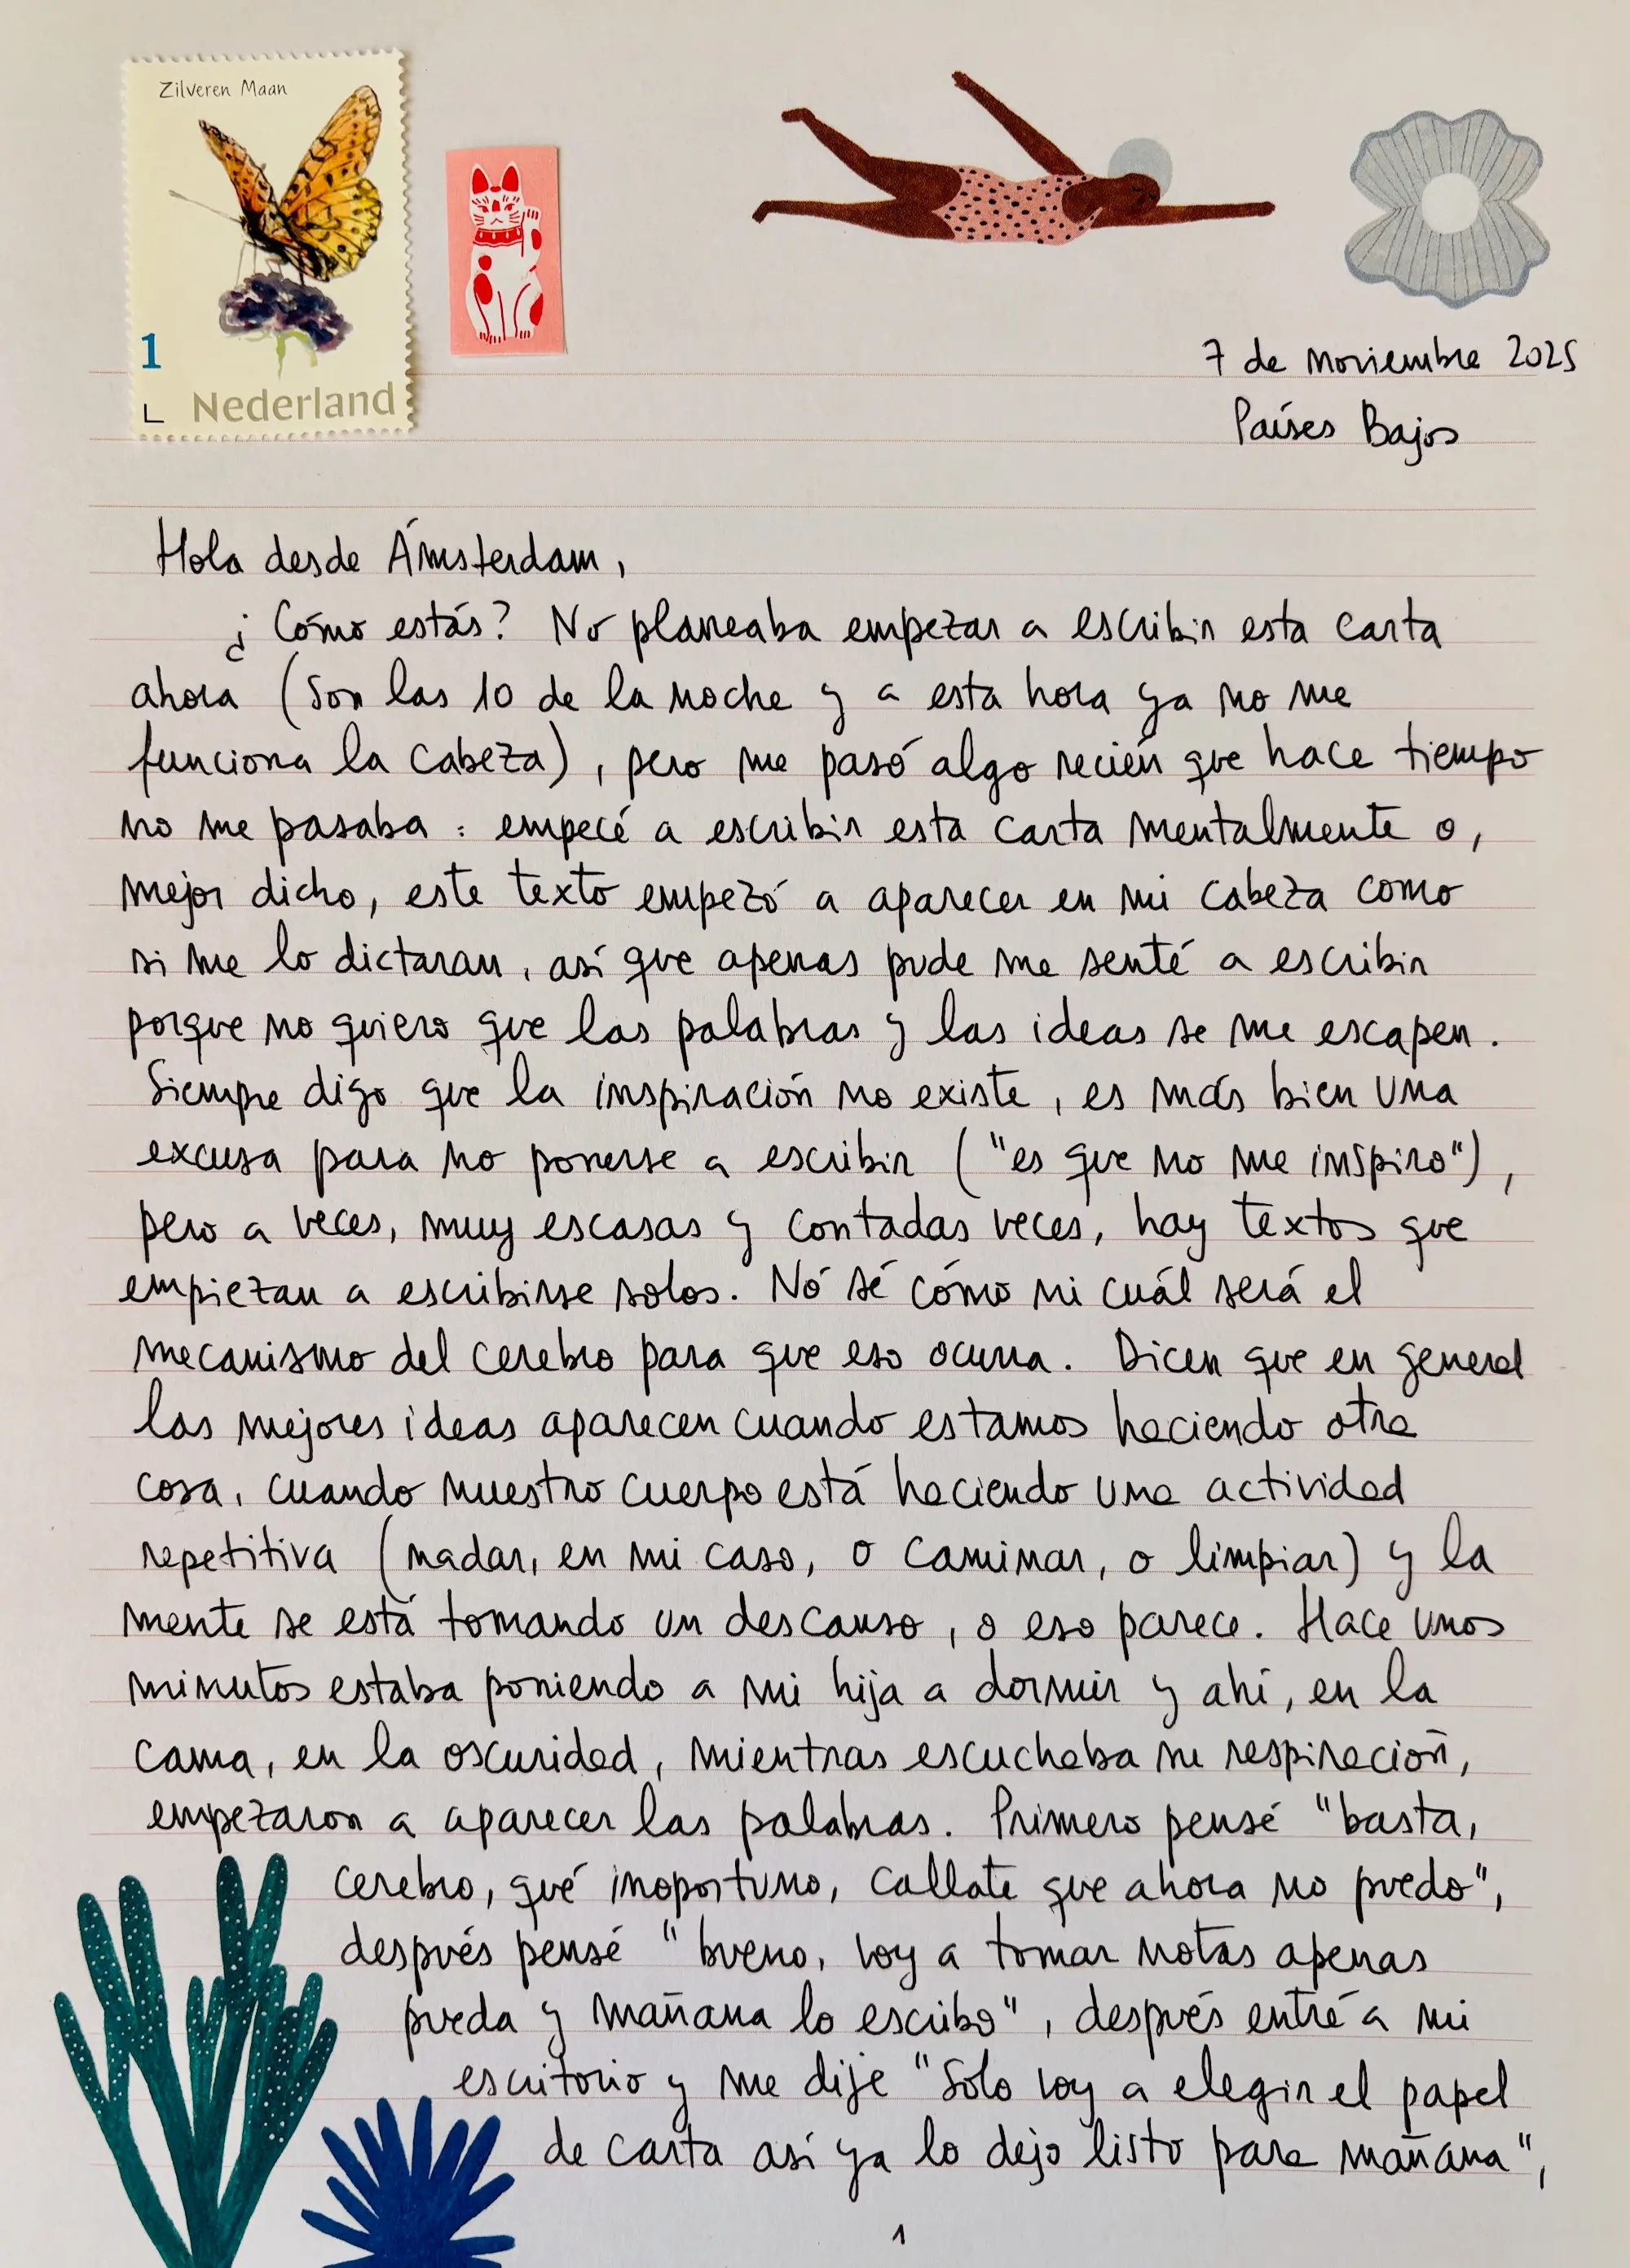 Zilveren Maan
1
L Nederland
7 de noviembre 2025
Países Bajos
Hola desde Ámsterdam,
¿Cómo estás? No planeaba empezar a escribir esta carta
ahora (son las 10 de la noche y a esta hora ya no me
funciona la cabeza), pero me pasó algo recién que hace tiempo
no me pasaba: empecé a escribir esta carta mentalmente o,
mejor dicho, este texto empezó a aparecer en mi cabeza como
si me lo dictaran, así que apenas pude me senté a escribir
porque no quiero que las palabras y las ideas se me escapen.
Siempre digo que la inspiración no existe, es más bien una
excusa para no ponerse a escribir ("es que no me inspiro"),
pero a veces, muy escasas y contadas veces, hay textos que
empiezan a escribirse solos. No sé cómo ni cuál será el
mecanismo del cerebro para que eso ocurra. Dicen que en general
las mejores ideas aparecen cuando estamos haciendo otra
cosa, cuando nuestro cuerpo está haciendo una actividad
repetitiva (nadar, en mi caso, o caminar, o limpiar) y la
mente se está tomando un descanso, o eso parece. Hace unos
minutos estaba poniendo a mi hija a dormir y ahí, en la
cama, en la oscuridad, mientras escuchaba su respiración,
empezaron a aparecer las palabras. Primero pensé "basta,
cerebro, qué inoportuno, callate que ahora no puedo",
después pensé "bueno, voy a tomar notas apenas
pueda y mañana lo escribo", después entré a mi
escritorio y me dije "Solo voy a elegir el papel
de carta así ya lo dejo listo para mañana",
1